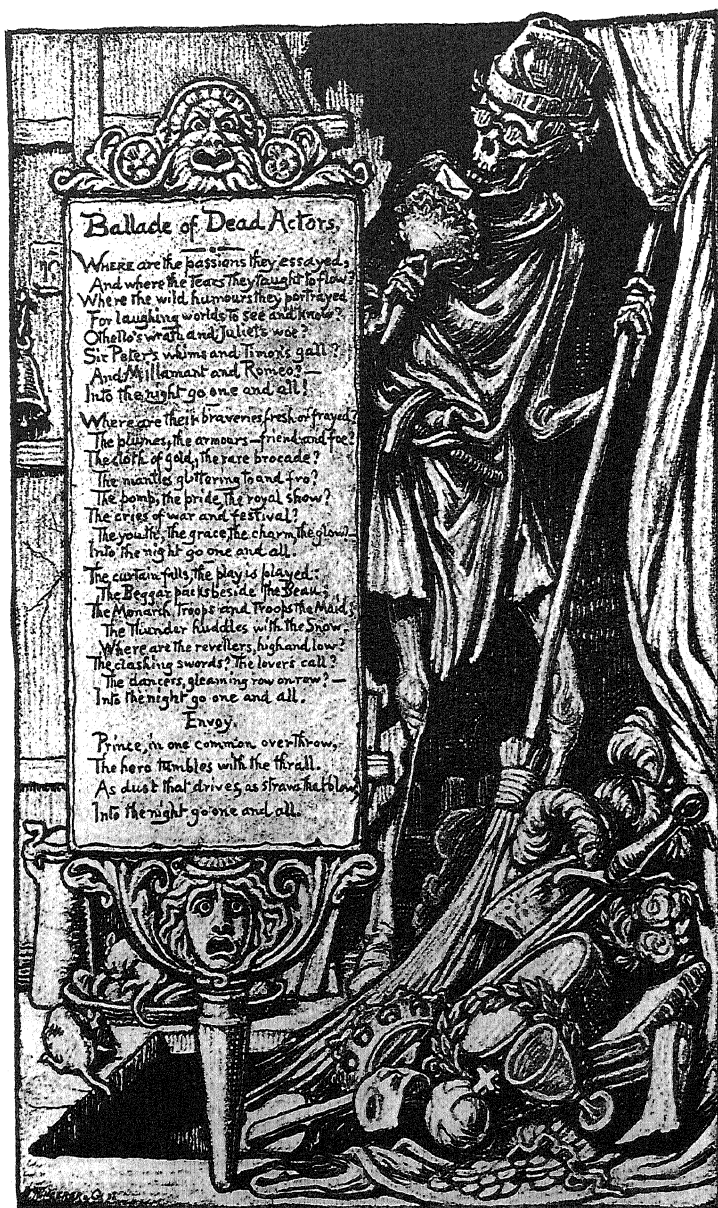 Ballade of Dead Actors.
WHERE are the passions they essayed,
And where the tears they taught to flow?
Where the wild humours they portrayed
For laughing worlds to see and know?
Othello's wrath and Juliet's woe?
Sir Peter's whims and Timon's gall?
And Millamant and Romeo? —
Into the night go one and all!
Where are their braveries, fresh or frayed?
The plumes, the armours — friend and foe?
The cloth of gold, the rare brocade?
The mantles glittering to and fro?
The pomp, the pride, the royal show?
The cries of war and festival?
The youth, the grace, the charm, the glow? —
Into the night go one and all.
The curtain falls, the play is played:
The Beggar packs beside the Beau;
The Monarch troops and troops the Maid;
The Thunder huddles with the Snow
Where are the revellers, high and low?
The clashing swords? The lovers call?
The dancers, gleaming row on row? —
Into the night go one and all.
Envoy.
Prince, in one common overthrow,
The hero tumbles with the thrall.
As dust that drives, as straws that blow,
Into the night go one and all.